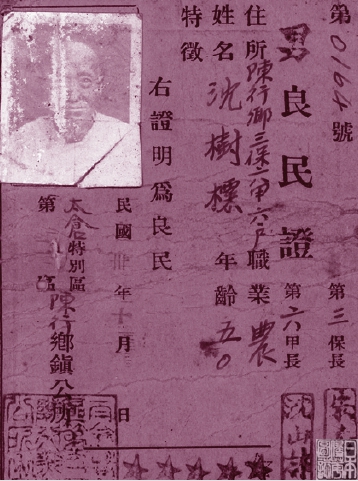 第0164號
男良民證
第三保長
第六甲長
住所陳行鄉三保六甲六戶職業農
姓名沈樹標年齡五〇
特徵
右證明爲良民
民國卅年十月日
太倉特別區
第區陳行鄉鎮公所
沈山